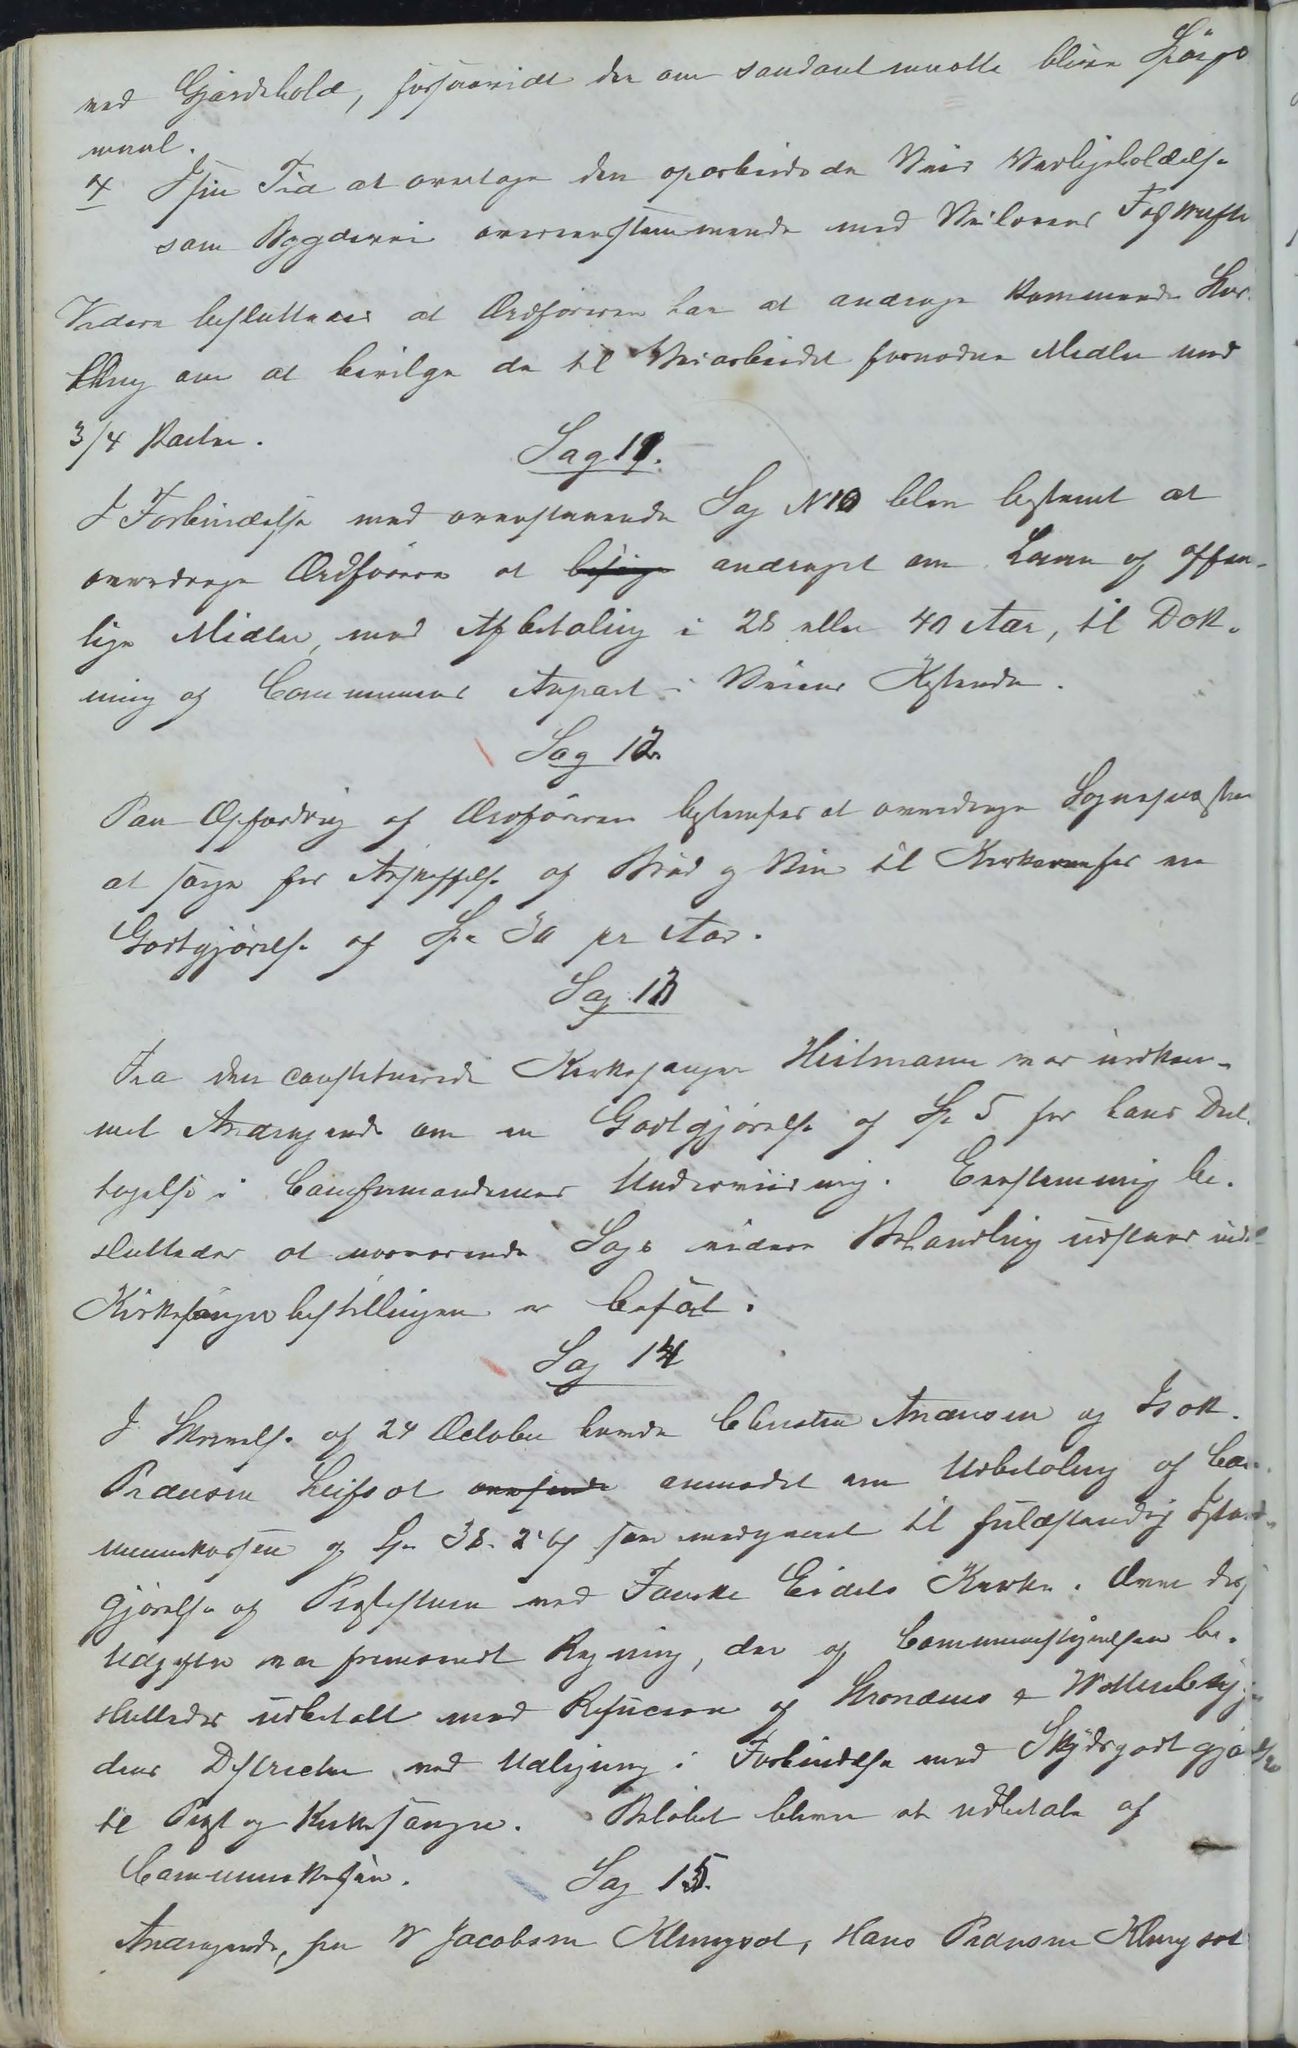 ved Gjærdehold, forsaavidt der om saadant maatte blive Spörgs
maal.
4 I sin Tid at overtage den oparbeidede Veis Vedligeholdelse
som Bygdevei overeensstemmende med Veilovens Forskrifter
Videre besluttedes at Ordföreren har at andrage kommende Stor-
thing om at bevilge de til Veiarbeidet fornødne Midler med
3/4 Parter.
Sag 11.
I Forbindelse med ovenstaaende Sag N 10 blev bestemt at
overdrage Ordföreren at andraget om Laan af offent-
lige Midler, med Afbetaling i 28 eller 40 Aar, til Dæk-
ning af Communens Anpart i Veiens Kostende.
Sag 12
Paa Opfordring af Ordföreren bestemtes at overdrage Sognepræsten
at sörge for Anskaffelse af Bröd og Vin til Kirkerne for en
Godtgjörelse af Sp 30 pr Aar.
Sag 13
Fra den constituerede Kirkesanger Heitmann var indkom-
met Andragende om en Godtgjörelse af Sp 5 for hans Del-
tagelse i Confirmandernes Underviisning. Eenstemmig be-
sluttedes at nærværende Sags videre Behandling udstaar indtil
Kirkesangerbestillingen er besat.
Sag 14
I Skrivelse af 24 October havde Christen Andersen og Isak
Pedersen Leifset anmodet om Udbetaling af Com-
munekassen af Sp 38. 2 som medgaaet til fuldstændig Istand-
gjörelse af Præstestuen ved Fauske Eidets Kirke. Over disse
Udgifter var fremsendt Regning, der af Communestyrelsen be-
sluttedes udbetalt med Refusion af Strandens &
dens Districter ved Udligning i Forbindelse med Skydsgodtgjörelse
til Præst og Kirkesanger. Belöbet bliver at udbetale af
Communekassen.
Sag 15.
Andragende, fra N Jacobsen Klungset, Hans Pedersen Klungset